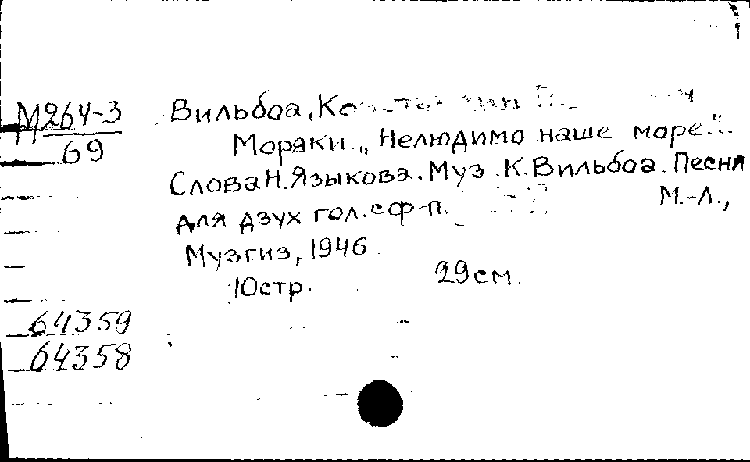 М264-3
69
Вильбоа,
Моряки. „Нелюдимо наше море."
Слова Н. Языкова. Муз. К. Вильбоа. Песня
для двух гол. с ф-п. М.-Л.,
Музгиз, 1946.
10стр. 29см.
64359
64358